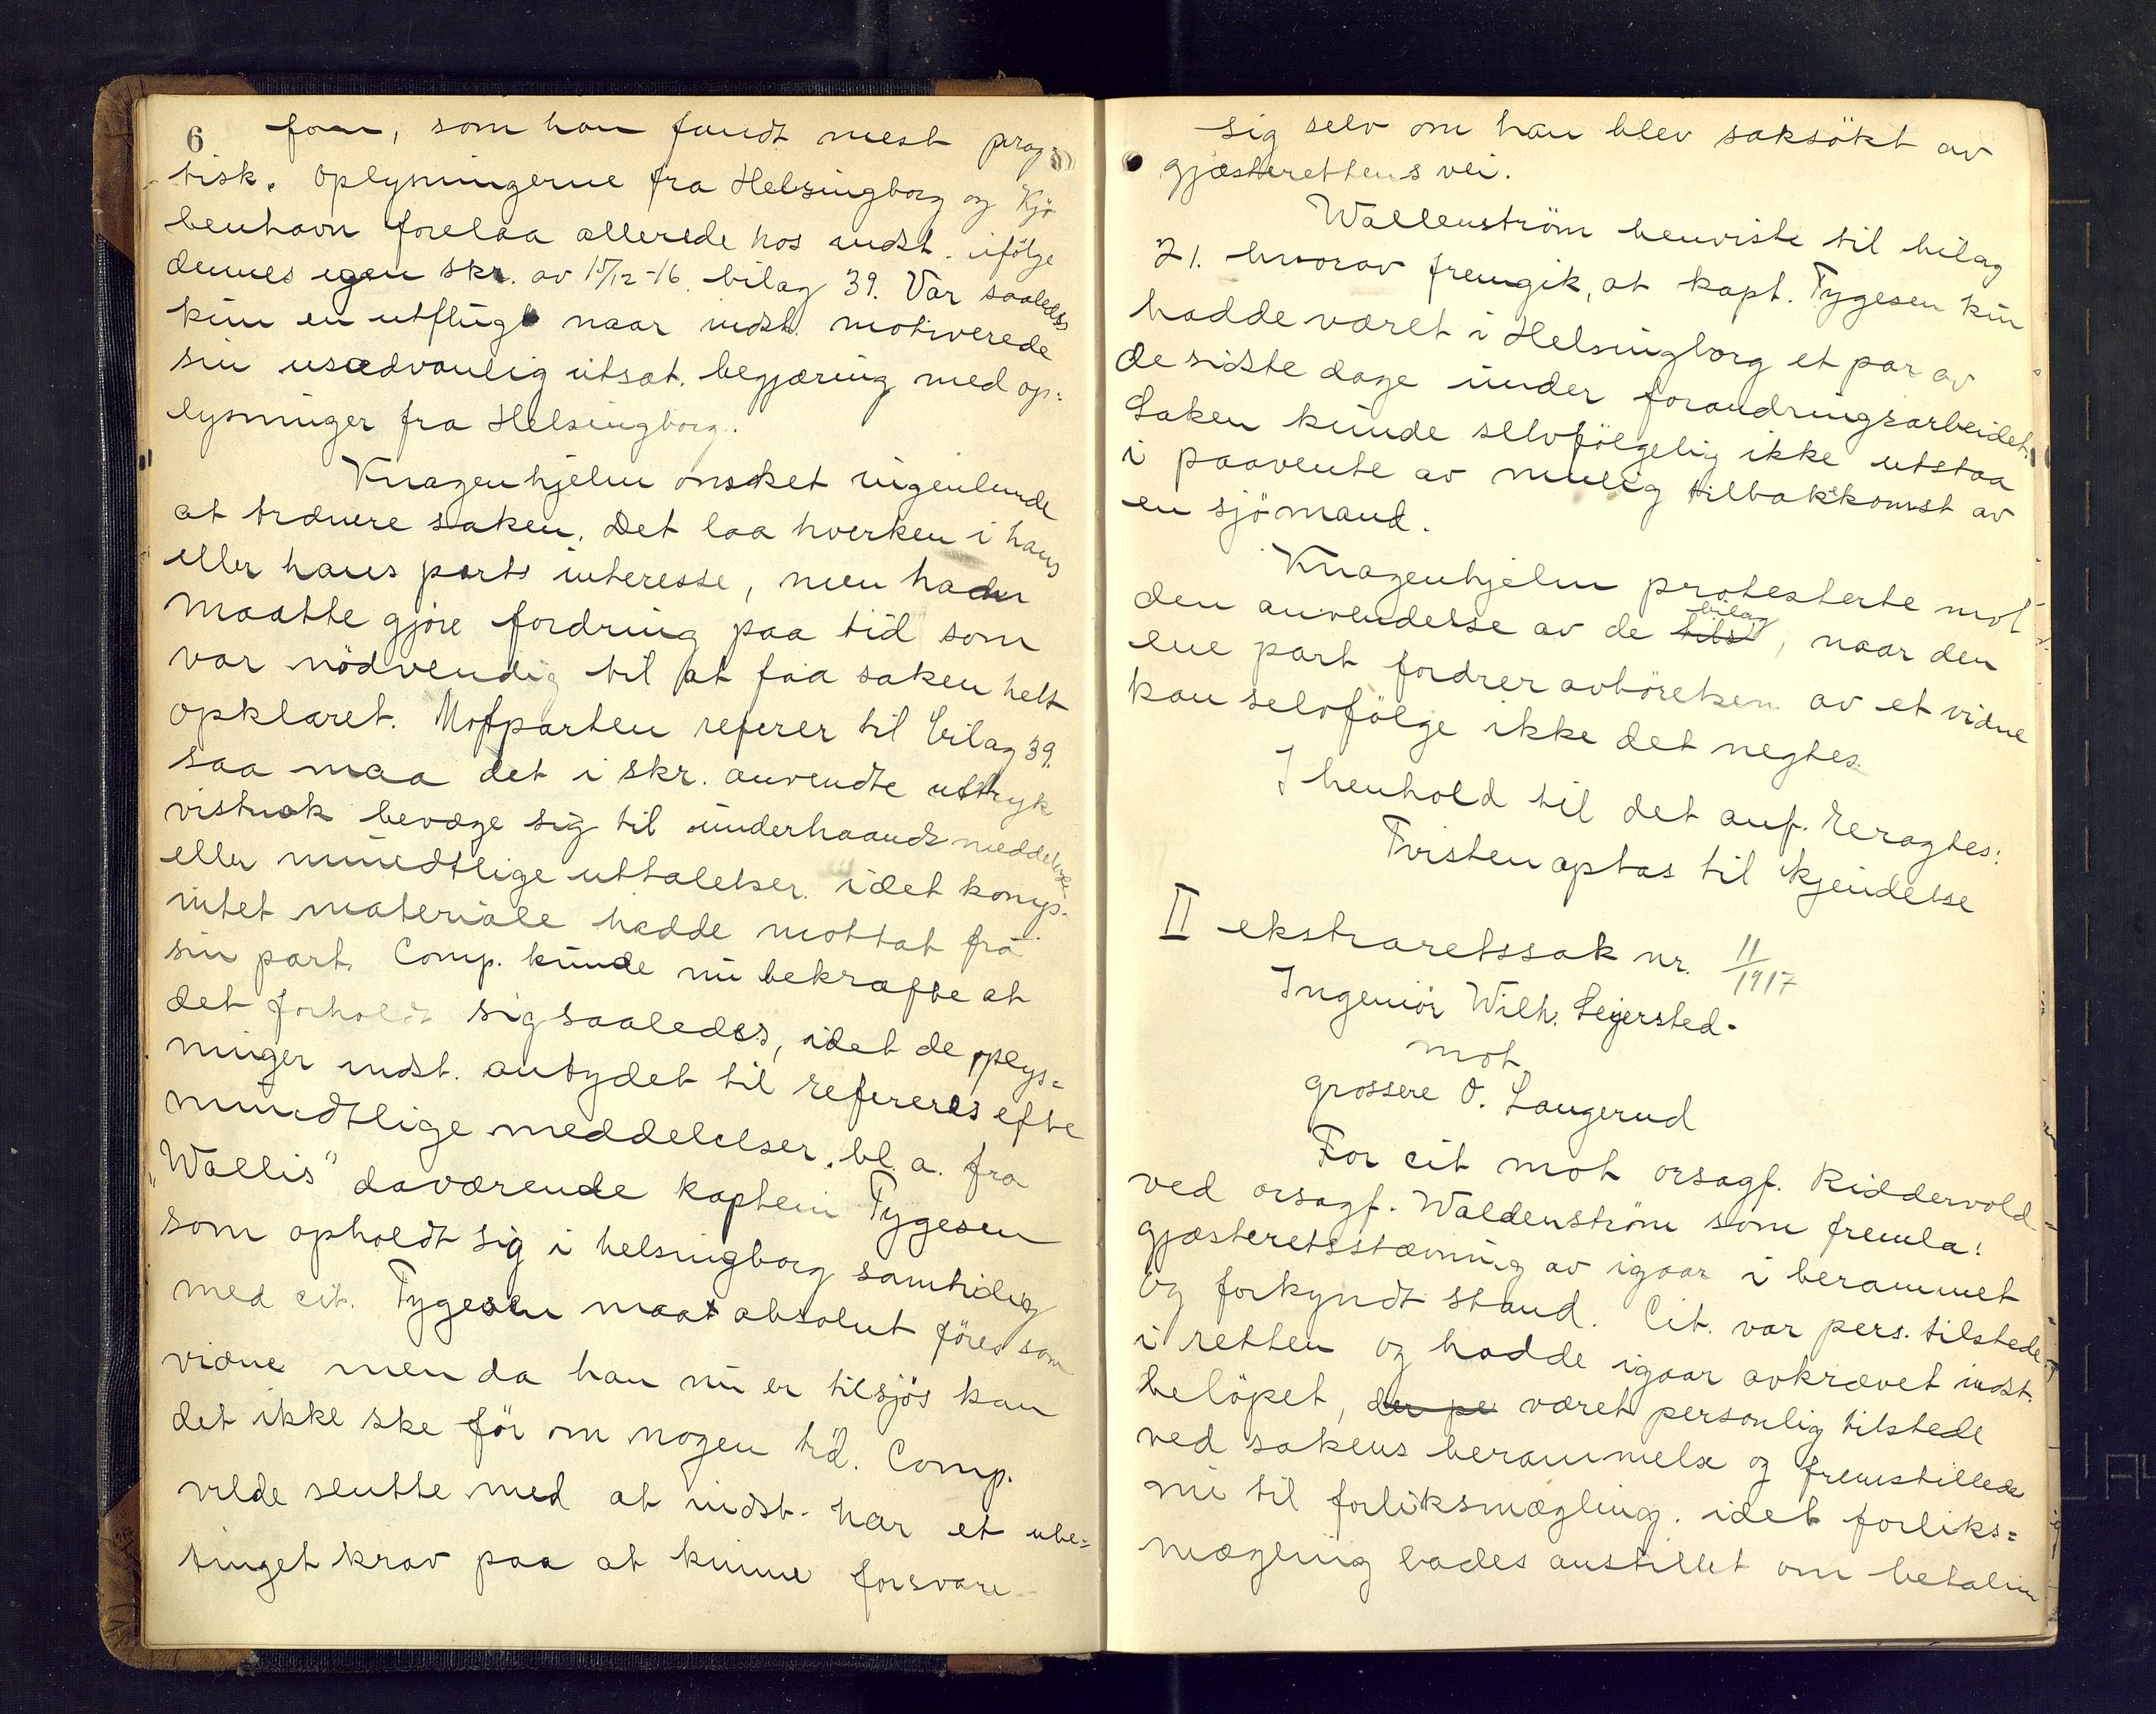 6 form, som han fandt mest prag-
tisk. Oplysningerne fra Helsingborg og Kjö
benhavn forelaa allerede hos indst. ifölge
dennes egen skr. av 15/12-16. bilag 39. Var saaledes
kun en utflugt naar indst. motiverede
sin usædvanlig utsat. begjæring med op:
lysninger fra Helsingborg.
Knagenhjelm ønsket ingenlunde
at trænere saken. Det laa hverken i hans
eller hans parts interesse, men han
maatte gjøre fordring paa tid som
var nödvendig til at faa saken helt
opklaret. Motparten referer til bilag 39.
saa maa det i skr. anvendte uttryk
vistnok bevæge sig til underhaands meddelelser
eller mundtlige uttalelser. idet komp.
intet materiale hadde mottat fra
sin part. Comp. kunde nu bekræfte at
det forholdt sig saaledes, idet de oplys=
ninger indst. antydet til refereres efte
mundtlige meddelelser. bl. a. fra
"Wallis" daværende kaptein Tygesen
som opholdt sig i helsingborg samtidig
med cit. Tygesen maat absolut föres som
vidne men da han nu er tilsjös kan
det ikke ske för om nogen tid. Comp.
vilde slutte med at indst. har et ube=
tinget krav paa at kunne forsvare
sig selv om han blev saksökt av
gjæsterettens vei.
Wallenström henviste til bilag
21. hvorav fremgik, at kapt. Tygesen kun
hadde været i Helsingborg et par av
de sidste dage under forandringsarbeidet.
Saken kunde selvfölgelig ikke utstaa
i paavente av mulig tilbakkomst av
en sjömand.
Knagenhjelm protesterte mot
bilag
den anvendelse av de tilst, naar den
ene part fordrer avhörelsen av et vidne
kan selvfölge ikke det negtes.
I henhold til det anf. eragtes:
Tvisten optas til kjendelse
II ekstraretssak nr. 11/1917
Ingeniör Wilh. Seyersted-
mot
grossere O. Langerud
For cit mot orsagf. Riddervold
ved orsagf. Waldenström som fremla:
gjæsteretsstævning av igaar i berammet
og forkyndt stand. Cit. var pers. tilstede
i retten og hadde igaar avkrævet indst.
belöpet, der pe været personlig tilstede
ved sakens berammelse og fremstillede
nu til forliksmægling. idet forliks=
mægling bades anstillet om betalin